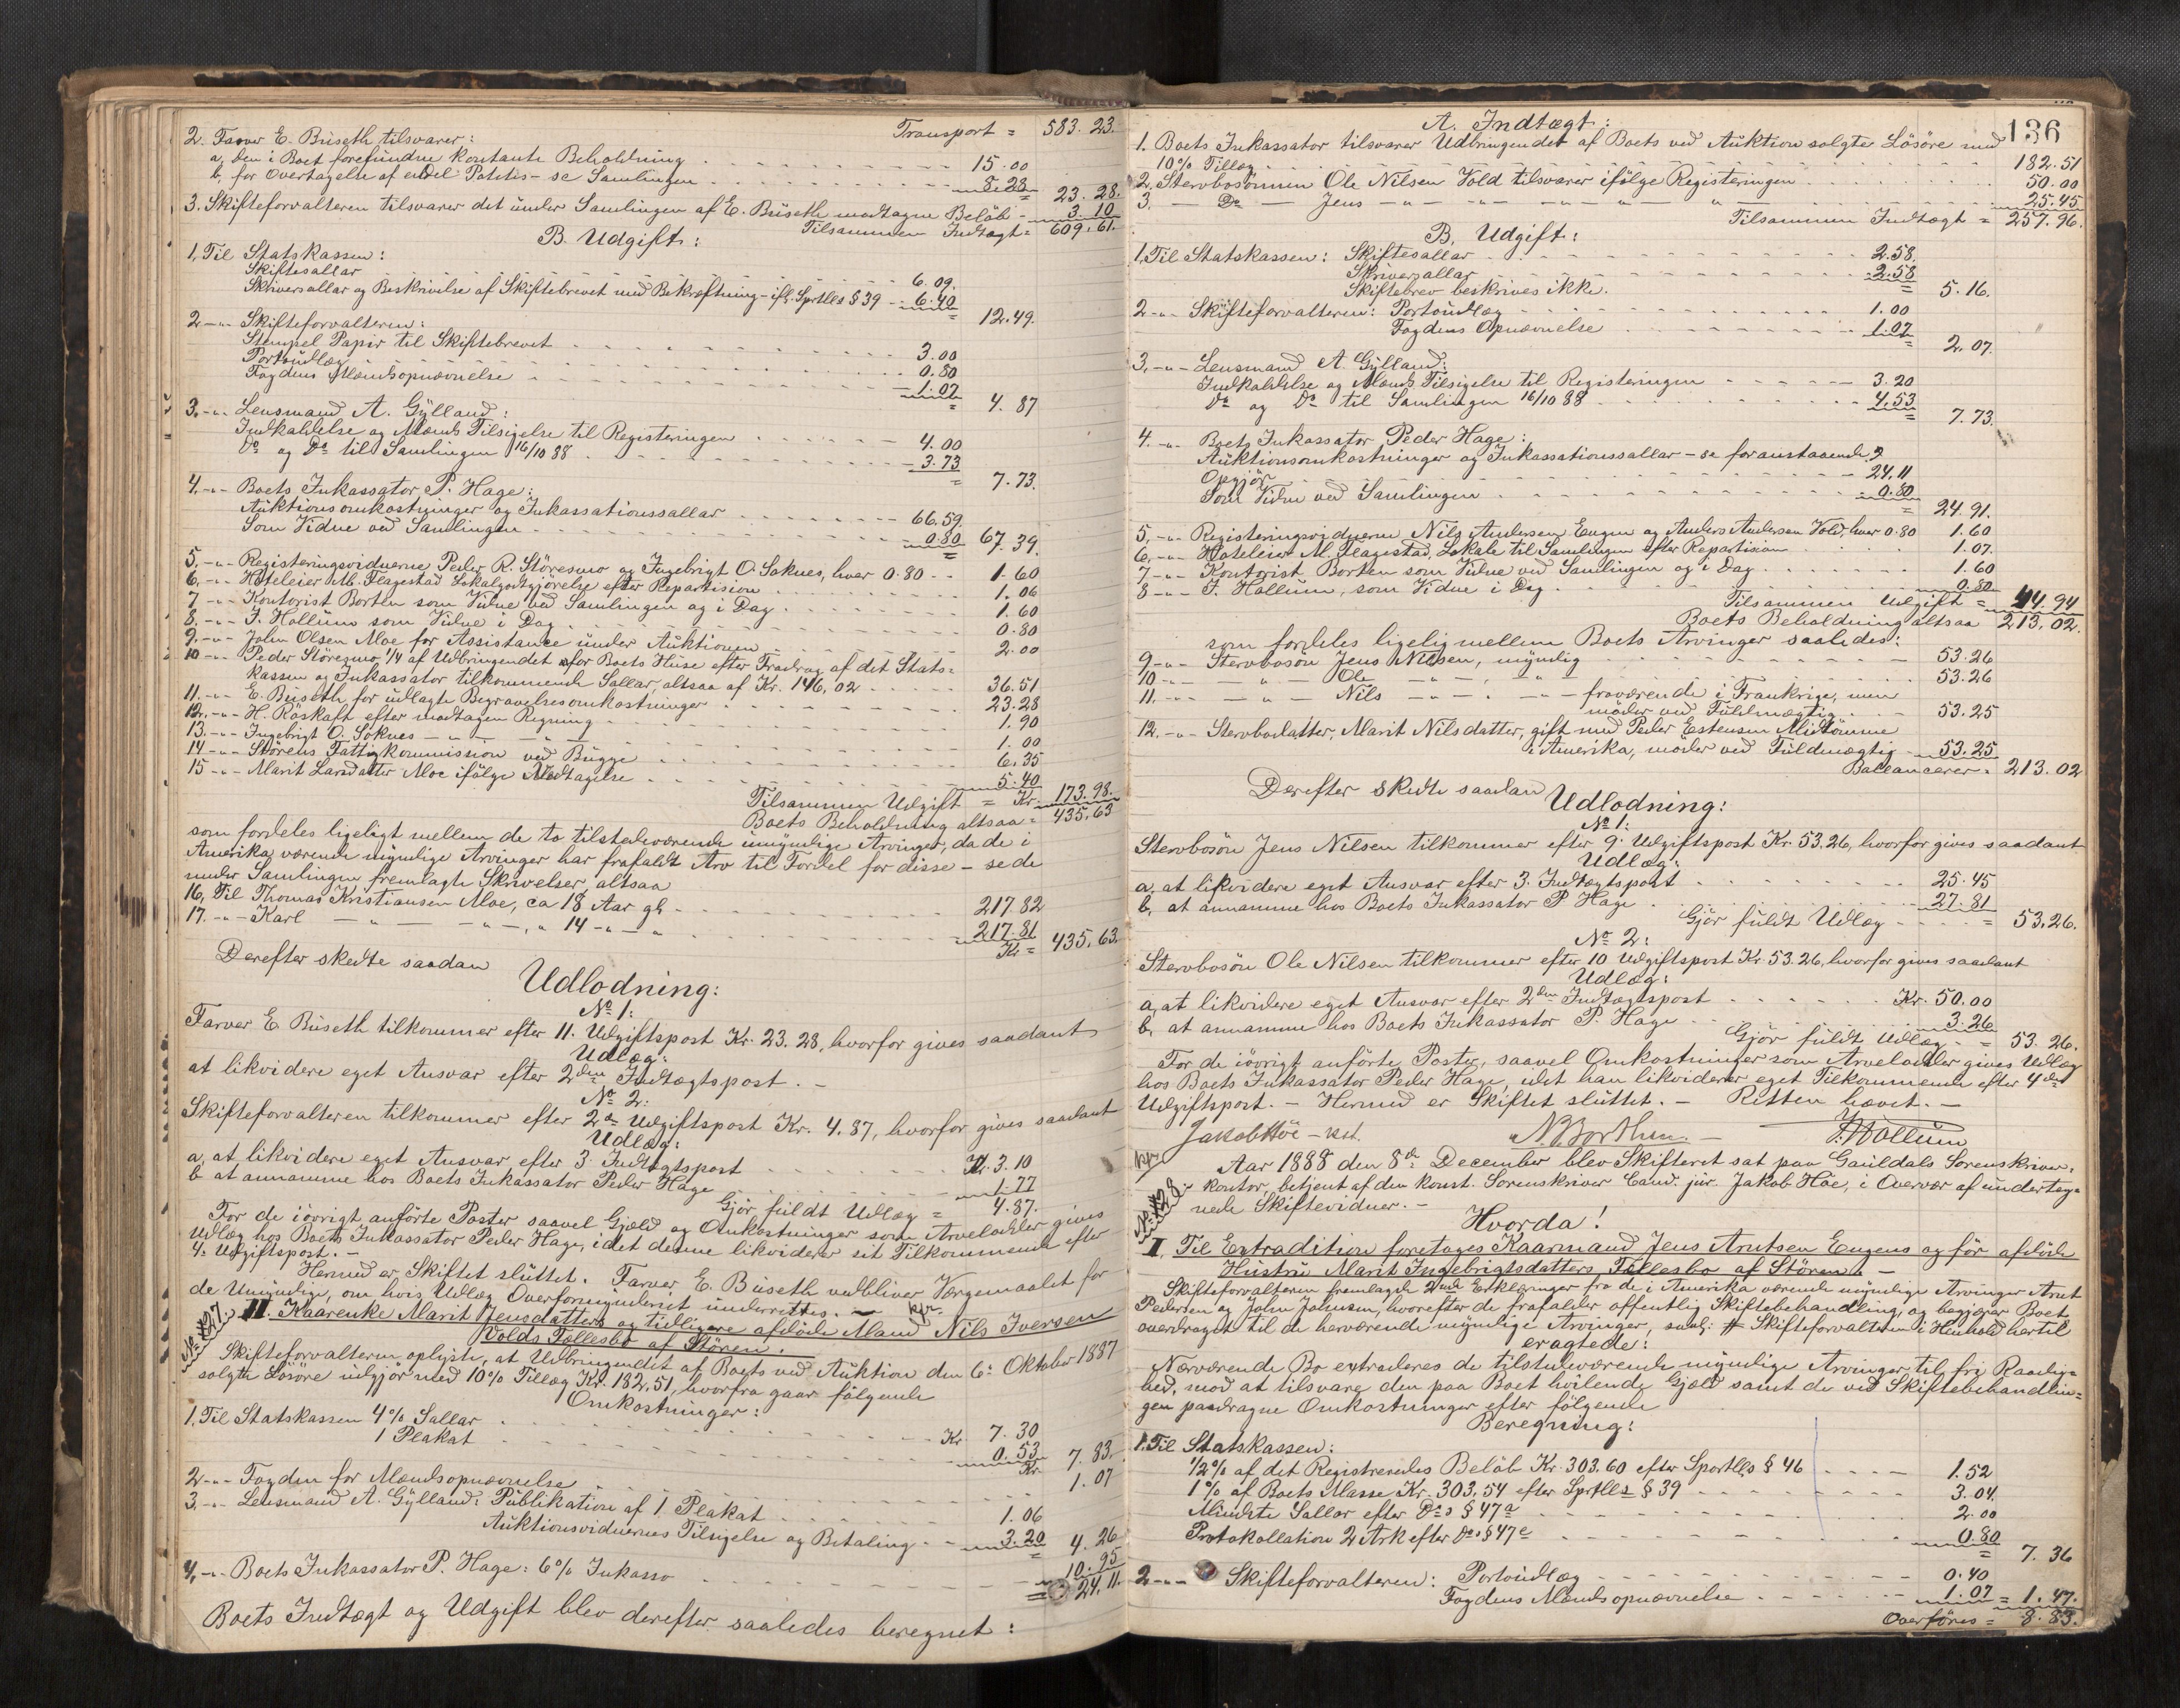 Transport = 583. 23.
2. Farver E. Buseth tilsvarer:
a, den i Boet forefundne kontante Beholdning 15.00
b, for Overtagelse af endel Potetes - se Samlingen 8.28 = 23. 28.
3. Skifteforvalteren tilsvarer det under Samlingen af E. Buseth modtagne Beløb - 3. 10
Tilsammen Indtægt = 609. 61.
B. Udgift:
1, Til Statskassen:
Skiftesallar 6. 09.
Skriversallar og Beskrivelse af Skiftebrevet med Bekræftning - ifl. Sprtlls § 39 - 6. 40 = 12. 49.
2 -"- Skifteforvalteren:
Stempel Papir til Skiftebrevet 3. 00
Portoudlæg 0. 80
Fogdens Mændsopnævnelse 1. 07 = 4. 87
3, -"- Lensmand A. Gylland:
Indkaldelse og Mænds Tilsigelse til Registeringen 4. 00
Do og Do til Samlingen 16/10 88 3. 73 = 7. 73.
4, -"- Boets Inkassator P. Hage:
Auktionsomkostninger og Inkassationssallar 66. 59
Som Vidne ved Samlingen 0. 80 = 67. 39.
5, -"- Registeringsvidnerne Peder R. Störesmo og Ingebrigt O. Soknes, hver 0.80 - - 1. 60
6, -"- Hoteleier M. Flagestad Lokalgodtgjörelse efter Repartision 1. 06
7 -"- Kontorist Borten som Vidne ved Samlingen og i Dag 1. 60
8, -"- J. Hollum som Vidne i Dag 0. 80
9, -"- John Olsen Moe for Assistance under Auktionen 2. 00
10 -"- Peder Störesmo 1/4 af Udbringendet for Boets Huse efter Fradrag af det Stats=
kassen og Inkassator tilkommende Sallar, altsaa af Kr. 146, 02 36. 51
11. -"- E. Buseth for udlagte Begravelsesomkostninger 23. 28
12. -"- H. Röskaft efter modtagen Regning 1. 90
13. -"- Ingebrigt O. Soknes -"- -"- 1. 00
14 -"- Störens Fattigkommission ved Bugge 6. 35
15 -"- Marit Larsdatter Moe ifölge Vedtagelse 5. 40
Tilsammen Udgift = Kr. 173. 98.
Boets Beholdning altsaa = 435. 63
som fordeles ligeligt mellem de to tilstedeværende umyndige Arvinger, da de i
Amerika værende myndige Arvinger har frafaldt Arv til Fordel for disse - se de
under Samlingen fremlagte Skrivelser, altsaa
16, Til Thomas Kristiansen Moe, ca 18 Aar gl. 217. 82
17. -"- Karl -"- -"-, " 14 -"- " 217. 81 Kr = 435. 63.
Derefter skedte saadan
Udlodning:
No 1:
Farver E. Buseth tilkommer efter 11. Udgiftspost Kr. 23. 28, hvorfor gives saadant
Udlæg:
at likvidere eget Ansvar efter 2den Indtægtspost. -
No 2:
Skifteforvalteren tilkommer efter 2den Udgiftspost Kr. 4. 87, hvorfor gives saadant
Udlæg:
a, at likvidere eget Ansvar efter 3. Indtægtspost Kr. 3. 10
b at annamme hos Boets Inkassator Peder Hage 1. 77
Gjör fuldt Udlæg = 4. 87.
For de iövrigt anförte Poster saavel Gjæld og Omkostninger som Arvelodder gives
Udlæg hos Boets Inkassator Peder Hage, idet denne likviderer sit Tilkommende efter
4. Udgiftspost. -
Hermed er Skiftet sluttet. Farver E. Buseth vedbliver Værgemaalet for
de Umyndige, om hvis Udlæg Overformynderiet underrettes. -
II. Kaarenke Marit Jensdatters og tidligere afdöde Mand Nils Iversen
Volds Fællesbo af Stören.
Skifteforvalteren oplyste, at Udbringendet af Boets ved Auktion den 6. Oktober 1887
solgte Lösöre udgjör med 10% Tillæg Kr. 182, 51, hvorfra gaar fölgende
Omkostninger:
1, Til Statskassen 4% Sallar Kr. 7. 30
1 Plakat 0. 53 Kr. 7. 83.
2 -"- Fogden for Mændsopnævnelse 1. 07
3, -"- Lensmand A. Gylland: Publikation af 1 Plakat 1. 06
Auktionsvidnernes Tilsigelse og Betaling 3. 20 = 4. 26
4, -"- Boets Inkassator P. Hage: 6% Inkasso 10. 95
= 24. 11.
Boets Indtægt og Udgift blev derefter saaledes beregnet:
136
A. Indtægt:
1. Boets Inkassator tilsvarer Udbringendet af Boets ved Auktion solgte Lösöre med
10% Tillæg 182. 51
2, Stervbosönnen Ole Nilsen Vold tilsvarer ifölge Registeringen 50. 00
3. - Do - Jens -"- -"- -"- -"- " 25. 45
Tilsammen Indtægt = 257. 96.
B. Udgift:
1, Til Statskassen: Skiftesallar 2. 58.
Skriversallar 2. 58
Skiftebrev beskrives ikke. = 5. 16.
2 -"- Skifteforvalteren: Portoudlæg 1. 00
Fogdens Opnævnelse 1. 07 = 2. 07.
3, -"- Lensmand A. Gylland:
Indkaldelse og Mænds Tilsigelse til Registeringen 3. 20
Do og Do til Samlingen 16/10 88 4. 53 = 7. 73.
4. -"- Boets Inkassator Peder Hage:
Auktionsomkostninger og Inkassationssallar - se foranstaaende
Opgjör 24. 11
Som Vidne ved Samlingen 0. 80 = 24. 91.
5, -"- Registeringsvidnerne Nils Andersen Engen og Anders Andersen Vold, hver 0.80 1. 60
6, -"- Hoteleier M. Flagestad, Lokale til Samlingen efter Repartision 1. 07.
7 -"- Kontorist Borten som Vidne ved Samlingen og i Dag 1. 60
8 -"- J. Hollum, som Vidne i Dag 0. 80
Tilsammen Udgift = 44. 94
Boets Beholdning altsaa 213. 02.
som fordeles ligelig mellem Boets Arvinger saaledes:
9 -"- Stervbosön Jens Nilsen, myndig 53. 26
10 -"- -"- Ole -"- , " 53. 26
11. -"- -"- Nils -"- -"- fraværende i Frankrige, men
möder ved Fuldmægtig 53. 25
12. -"- Stervbodatter, Marit Nilsdatter, gift med Peder Estensen Midtömme
i Amerika, möder ved Fuldmægtig 53. 25
Ballancerer = 213. 02
Derefter skedte saadan
Udlodning:
No 1:
Stervbosön Jens Nilsen tilkommer efter 9. Udgiftspost Kr. 53. 26, hvorfor gives saadant
Udlæg:
a, at likvidere eget Ansvar efter 3. Indtægtspost 25. 45
b, at annamme hos Boets Inkassator P. Hage 27. 81
Gjör fuldt Udlæg = 53. 26.
No 2:
Stervbosön Ole Nilsen tilkommer efter 10 Udgiftspost Kr. 53. 26, hvorfor gives saadant
Udlæg:
a, at likvidere eget Ansvar efter 2den Indtægtspost Kr. 50. 00
b, at annamme hos Boets Inkassator P. Hage 3. 26
Gjör fuldt Udlæg = 53. 26.
For de iövrigt anförte Poster, saavel Omkostninger som Arvelodder gives Udlæg
hos Boets Inkassator Peder Hage, idet han likviderer eget Tilkommende efter 4de
Udgiftspost. - Hermed er Skiftet sluttet. - Retten hævet. -
Jakob Höe - kst. N. Borthen. - J. Hollum
Aar 1888 den 8de December blev Skifteret sat paa Gauldals Sorenskriver=
kontor, betjent af den konst. Sorenskriver Cand. jur. Jakob Höe, i Overvær af underteg=
nede Skiftevidner. -
Hvorda!
I. Til Extradition foretages Kaarmand Jens Arntsen Engens og för afdöde
Hustru Marit Ingebrigtsdatters Fællesbo af Stören. -
Skifteforvalteren fremlagde 2nde Erklæringer fra de i Amerika værende myndige Arvinger Arnt
Pedersen og John Johnsen, hvorefter de frafalder offentlig Skiftebehandling, og begjærer Boet
overdraget til de herværende myndige Arvinger, Skifteforvalteren i Henhold hertil
eragtede:
Nærværende Bo extraderes de tilstedeværende myndige Arvinger til fri Raadig=
hed, mod at tilsvare den paa Boet hvilende Gjæld samt de ved Skiftebehandlin=
gen paadragne Omkostninger efter fölgende
Beregning:
1. Til Statskassen:
1/2% af det Registreredes Belöb Kr. 303. 60 efter Sportlls § 46 1. 52
1% af Boets Masse Kr. 303. 54 efter Sprtlls § 39 3. 04
Mindste Sallar efter Dos § 47a 2. 00
Protokollation 2 Ark efter Dos § 47c 0. 80 = 7. 36
2 -"- Skifteforvalteren: Portoudlæg 0. 40
Fogdens Mændsopnævnelse 1. 07 = 1. 47.
Overföres = 8. 83.